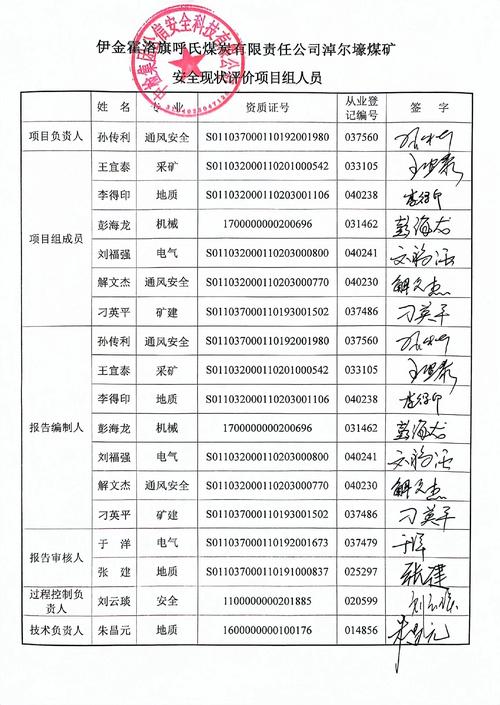 伊金霍洛旗呼氏煤炭有限责任公司淖尔壕煤矿
安全现状评价项目组人员
姓 名 专 业 资质证号 从业登记编号 签 字
项目负责人 孙传利 通风安全 S011037000110192001980 037560
项目组成员 王宜泰 采矿 S011032000110201000542 033105
李得印 地质 S011032000110203001106 040238 李得印
彭海龙 机械 1700000000200696 031462 彭海龙
刘福强 电气 S011032000110203000800 040241
解文杰 通风安全 S011032000110203000770 040230 解文杰
刁英平 矿建 S011037000110193001502 037486 刁英平
报告编制人 孙传利 通风安全 S011037000110192001980 037560
王宜泰 采矿 S011032000110201000542 033105
李得印 地质 S011032000110203001106 040238 李得印
彭海龙 机械 1700000000200696 031462 彭海龙
刘福强 电气 S011032000110203000800 040241
解文杰 通风安全 S011032000110203000770 040230 解文杰
刁英平 矿建 S011037000110193001502 037486 刁英平
报告审核人 于 洋 电气 S011037000110192001673 037479 于洋
张 建 地质 S011037000110191000837 025297 张建
过程控制负责人 刘云琰 安全 1100000000201885 020599
技术负责人 朱昌元 地质 1600000000100176 014856 朱昌元